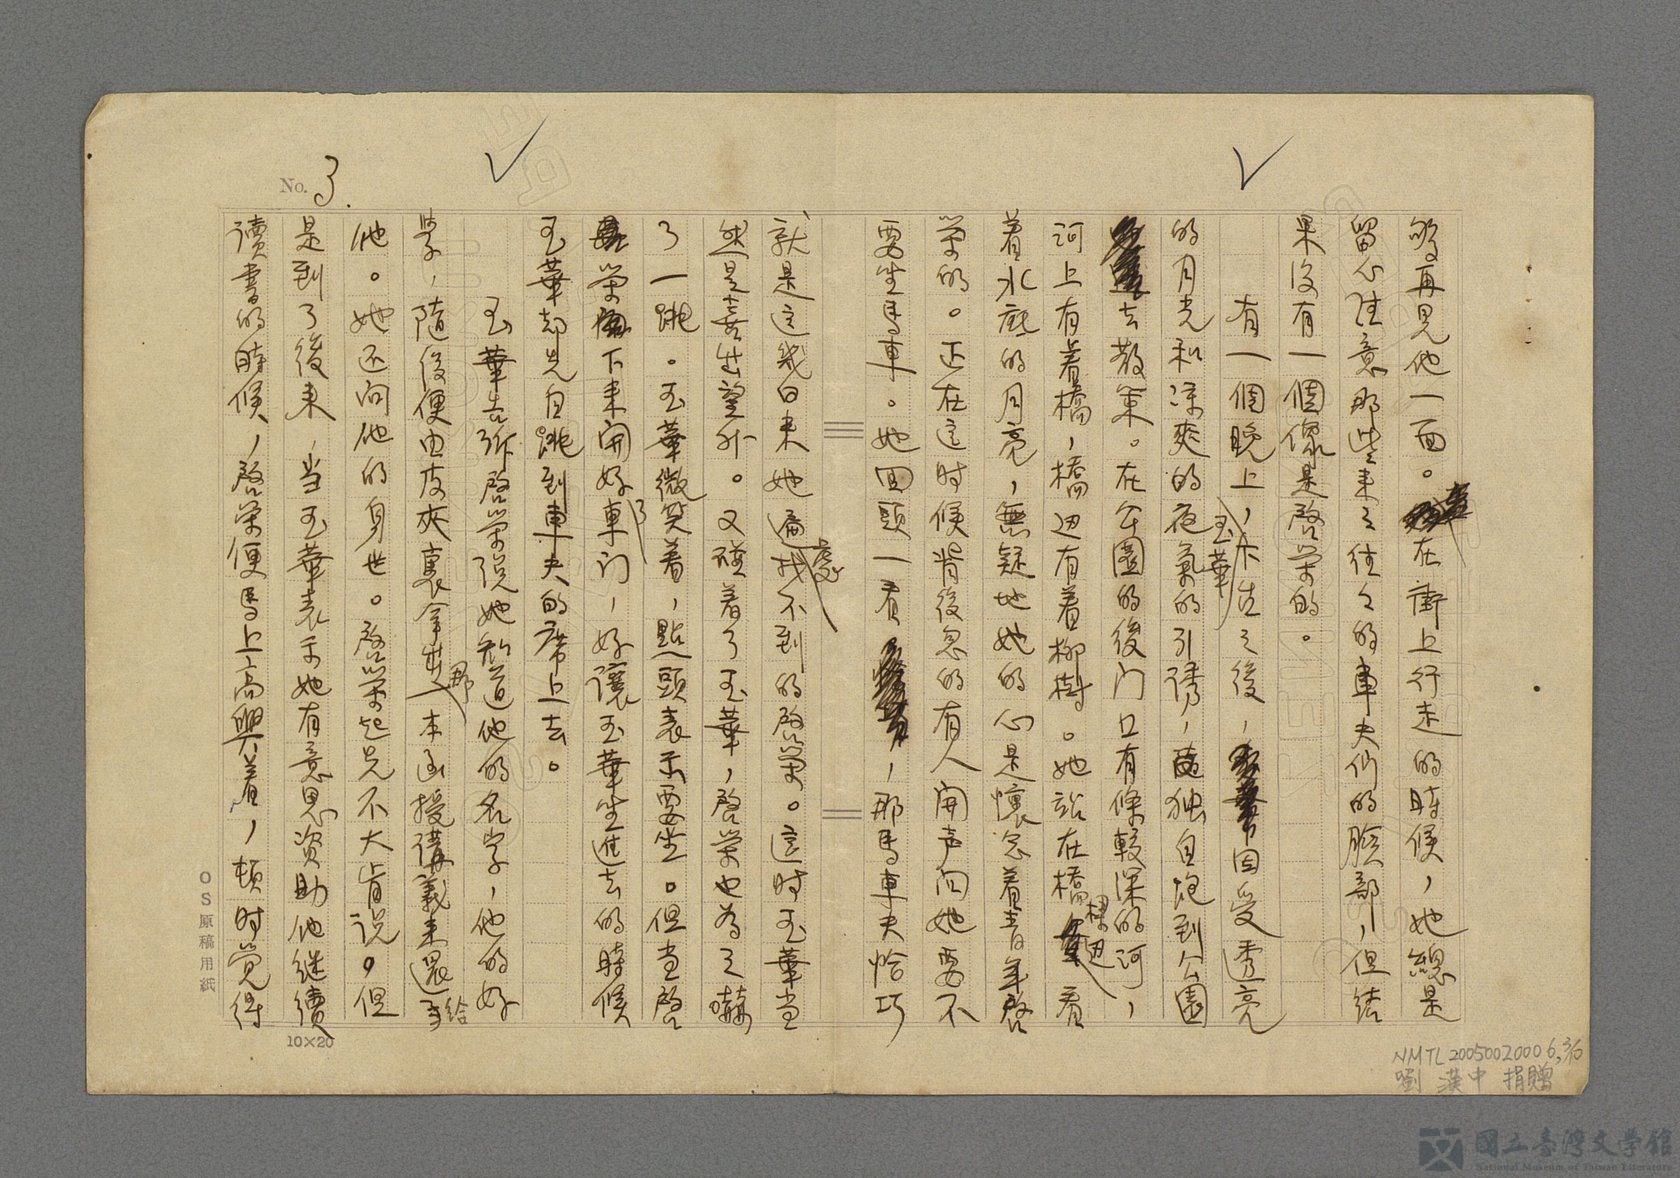 No. 3.
够再見他一面。在街上行走的時候，她總是
留心注意那些来之往之的車夫们的臉部，但結
果没有一個像是啓荣的。
有一個晚上，玉華下先之後，因受透亮
的月光和凉爽的夜氣的引誘，独自跑到公園
去散策。在公園的後门口有條較深的河，
河上有着橋，橋边有着柳樹。她站在橋樑边看
着水底的月亮，無疑地她的心是懷念着青年啓
荣的。正在這时候背後忽的有人開声问她要不
要坐馬車。她回頭一看，那馬車夫恰巧
就是這幾日来她遍處找不到的啓荣。這时玉華当
然是喜出望外。又碰着了玉華，啓荣也為之嚇
了一跳。玉華微笑着，點頭表示要坐。但当啓
荣下来開好了車门，好讓玉華坐進去的時候
玉華却先自跳到車夫的席上去。
玉華告訴啓荣説她知道他的名字，他的好
學，隨後便由皮夾裏拿出那本函授講義来還给
他。她还问他的身世。啓荣起先不大肯説。但
是到了後来，当玉華表示她有意思资助他继續
讀書的時候，啓荣便馬上高興着，頓时觉得
OS原稿用紙
10×20
NMTL20050020006,3/10
劉漢中 捐贈
國立臺灣文學館
National Museum of Taiwan Literature